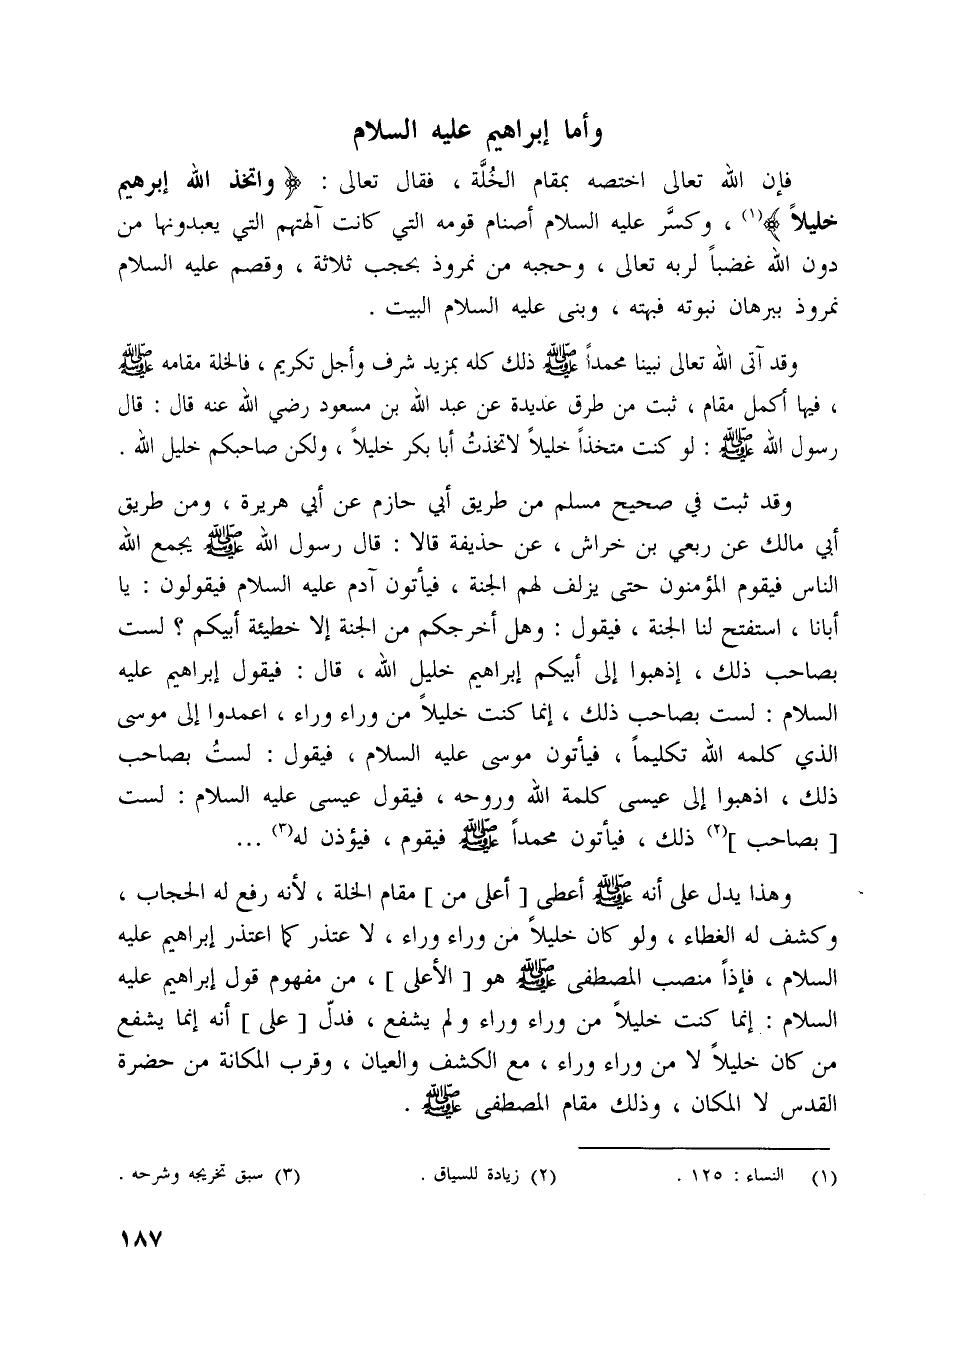 وأما إبراهيم عليه السلام
فإن الله تعالى اختصه بمقام الخُلَّة ، فقال تعالى : ﴿ واتخذ الله إبرهيم
خليلاً ﴾(١) ، وكسَّر عليه السلام أصنام قومه التي كانت آلهتهم التي يعبدونها من
دون الله غضباً لربه تعالى ، وحجبه من نمروذ بحجب ثلاثة ، وقصم عليه السلام
نمروذ ببرهان نبوته فبهته ، وبنى عليه السلام البيت .
وقد آتى الله تعالى نبينا محمداً ﷺ ذلك كله بمزيد شرف وأجل تكريم ، فالخلة مقامه ﷺ
، فيها أكمل مقام ، ثبت من طرق عديدة عن عبد الله بن مسعود رضي الله عنه قال : قال
رسول الله ﷺ : لو كنت متخذاً خليلاً لاتخذتُ أبا بكر خليلاً ، ولكن صاحبكم خليل الله .
وقد ثبت في صحيح مسلم من طريق أبي حازم عن أبي هريرة ، ومن طريق
أبي مالك عن ربعي بن خراش ، عن حذيفة قالا : قال رسول الله ﷺ يجمع الله
الناس فيقوم المؤمنون حتى يزلف لهم الجنة ، فيأتون آدم عليه السلام فيقولون : يا
أبانا ، استفتح لنا الجنة ، فيقول : وهل أخرجكم من الجنة إلا خطيئة أبيكم ؟ لست
بصاحب ذلك ، إذهبوا إلى أبيكم إبراهيم خليل الله ، قال : فيقول إبراهيم عليه
السلام : لست بصاحب ذلك ، إنما كنت خليلاً من وراء وراء ، اعمدوا إلى موسى
الذي كلمه الله تكليماً ، فيأتون موسى عليه السلام ، فيقول : لستُ بصاحب
ذلك ، اذهبوا إلى عيسى كلمة الله وروحه ، فيقول عيسى عليه السلام : لست
[ بصاحب ](٢) ذلك ، فيأتون محمداً ﷺ فيقوم ، فيؤذن له(٣) ...
وهذا يدل على أنه ﷺ أعطى [ أعلى من ] مقام الخلة ، لأنه رفع له الحجاب ،
وكشف له الغطاء ، ولو كان خليلاً من وراء وراء ، لا عتذر كما اعتذر إبراهيم عليه
السلام ، فإذاً منصب المصطفى ﷺ هو [ الأعلى ] ، من مفهوم قول إبراهيم عليه
السلام : إنما كنت خليلاً من وراء وراء ولم يشفع ، فدلّ [ على ] أنه إنما يشفع
من كان خليلاً لا من وراء وراء ، مع الكشف والعيان ، وقرب المكانة من حضرة
القدس لا المكان ، وذلك مقام المصطفى ﷺ .
(١) النساء : ١٢٥ . (٢) زيادة للسياق . (٣) سبق تخريجه وشرحه .
١٨٧